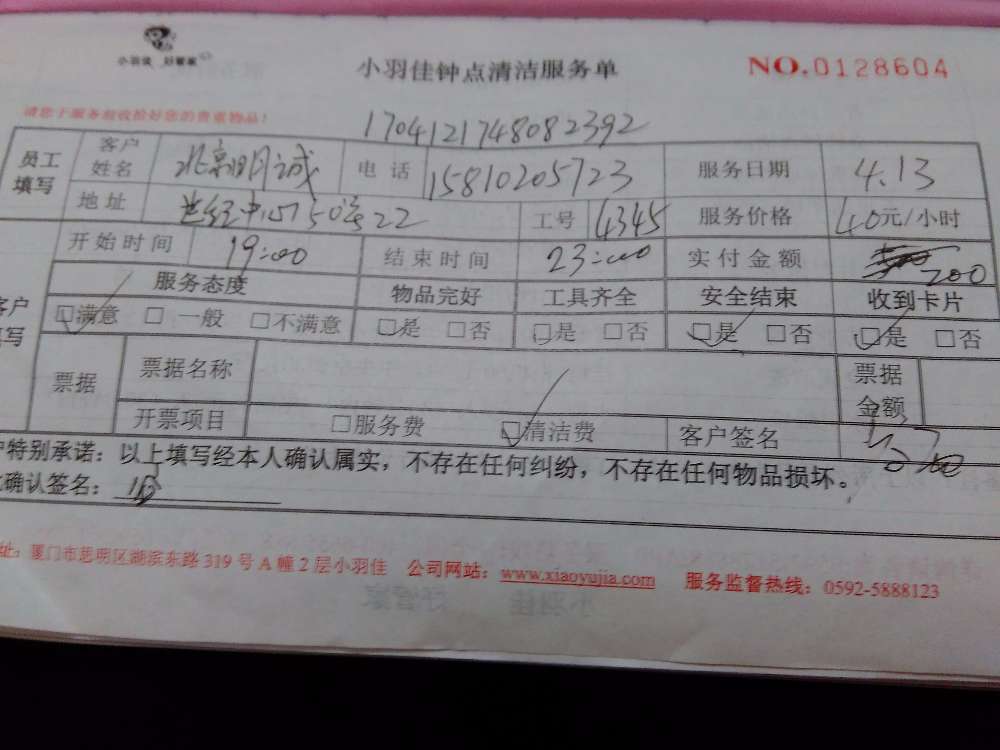 小羽佳 好管家
小羽佳钟点清洁服务单
NO.0128604
请您于服务前收拾好您的贵重物品！
1704121748082392
员工填写 客户姓名 北京明诚 电话 15810205723 服务日期 4.13
地址 世经中心 22 工号 4345 服务价格 40元/小时
开始时间 19:00 结束时间 23:00 实付金额 200
服务态度 物品完好 工具齐全 安全结束 收到卡片
客户填写 ☑满意 □一般 □不满意 □是 □否 □是 □否 ☑是 □否 ☑是 □否
票据 票据名称 票据金额
开票项目 □服务费 ☑清洁费 客户签名
户特别承诺：以上填写经本人确认属实，不存在任何纠纷，不存在任何物品损坏。
确认签名：
址：厦门市思明区湖滨东路 319 号 A 幢 2 层小羽佳 公司网站：www.xiaoyujia.com 服务监督热线：0592-5888123